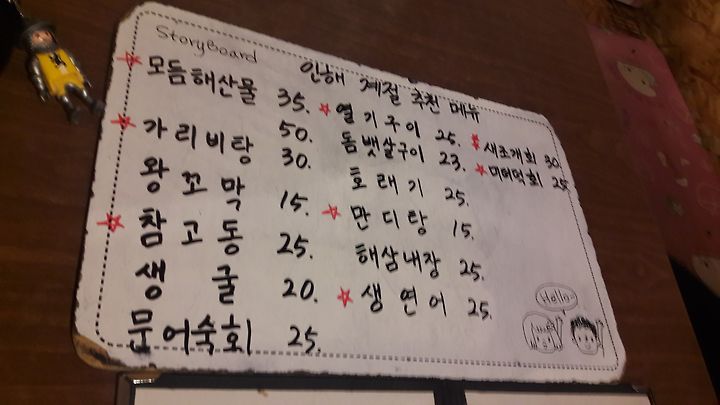 StoryBoard
인해 계절 추천 메뉴
모듬해산물 35.
50.
가리비탕 30.
왕꼬막 15.
참고동 25.
생굴 20.
문어숙회 25.
열기구이 25.
돔뱃살구이 23.
호래기 25.
만디탕 15.
해삼내장 25.
생연어 25.
새조개회 30.
미더덕회 25.
Hello~